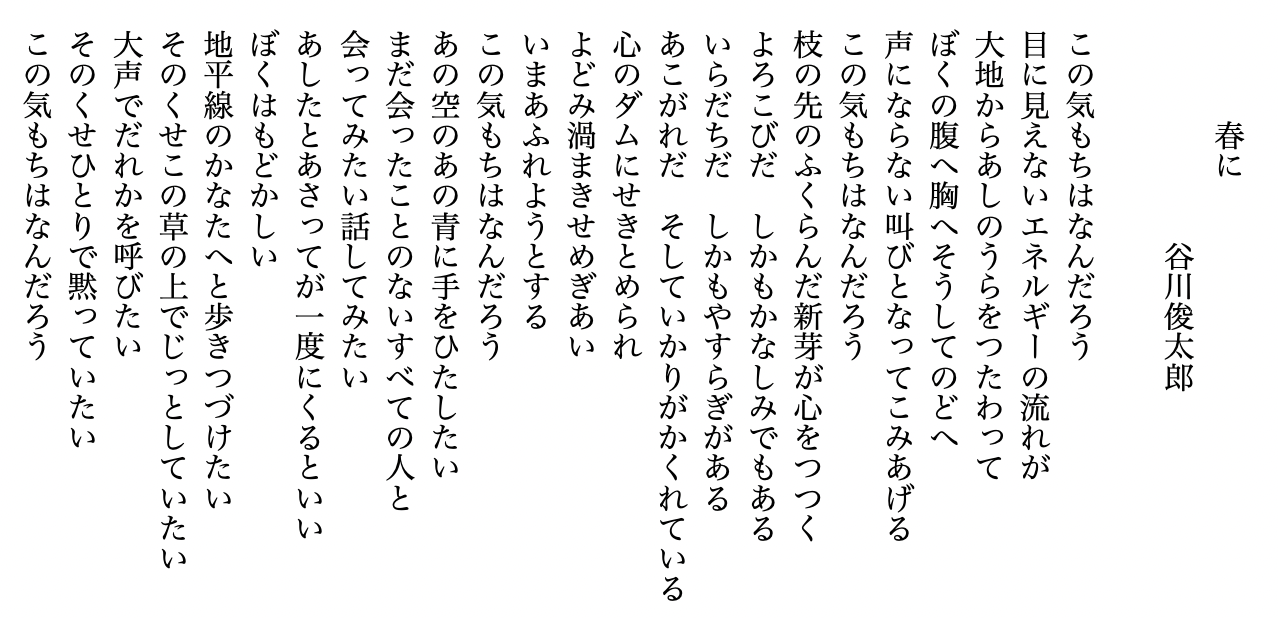 春に
谷川俊太郎
この気もちはなんだろう
目に見えないエネルギーの流れが
大地からあしのうらをつたわって
ぼくの腹へ胸へそうしてのどへ
声にならない叫びとなってこみあげる
この気もちはなんだろう
枝の先のふくらんだ新芽が心をつつく
よろこびだ　しかもかなしみでもある
いらだちだ　しかもやすらぎがある
あこがれだ　そしていかりがかくれている
心のダムにせきとめられ
よどみ渦まきせめぎあい
いまあふれようとする
この気もちはなんだろう
あの空のあの青に手をひたしたい
まだ会ったことのないすべての人と
会ってみたい話してみたい
あしたとあさってが一度にくるといい
ぼくはもどかしい
地平線のかなたへと歩きつづけたい
そのくせこの草の上でじっとしていたい
大声でだれかを呼びたい
そのくせひとりで黙っていたい
この気もちはなんだろう